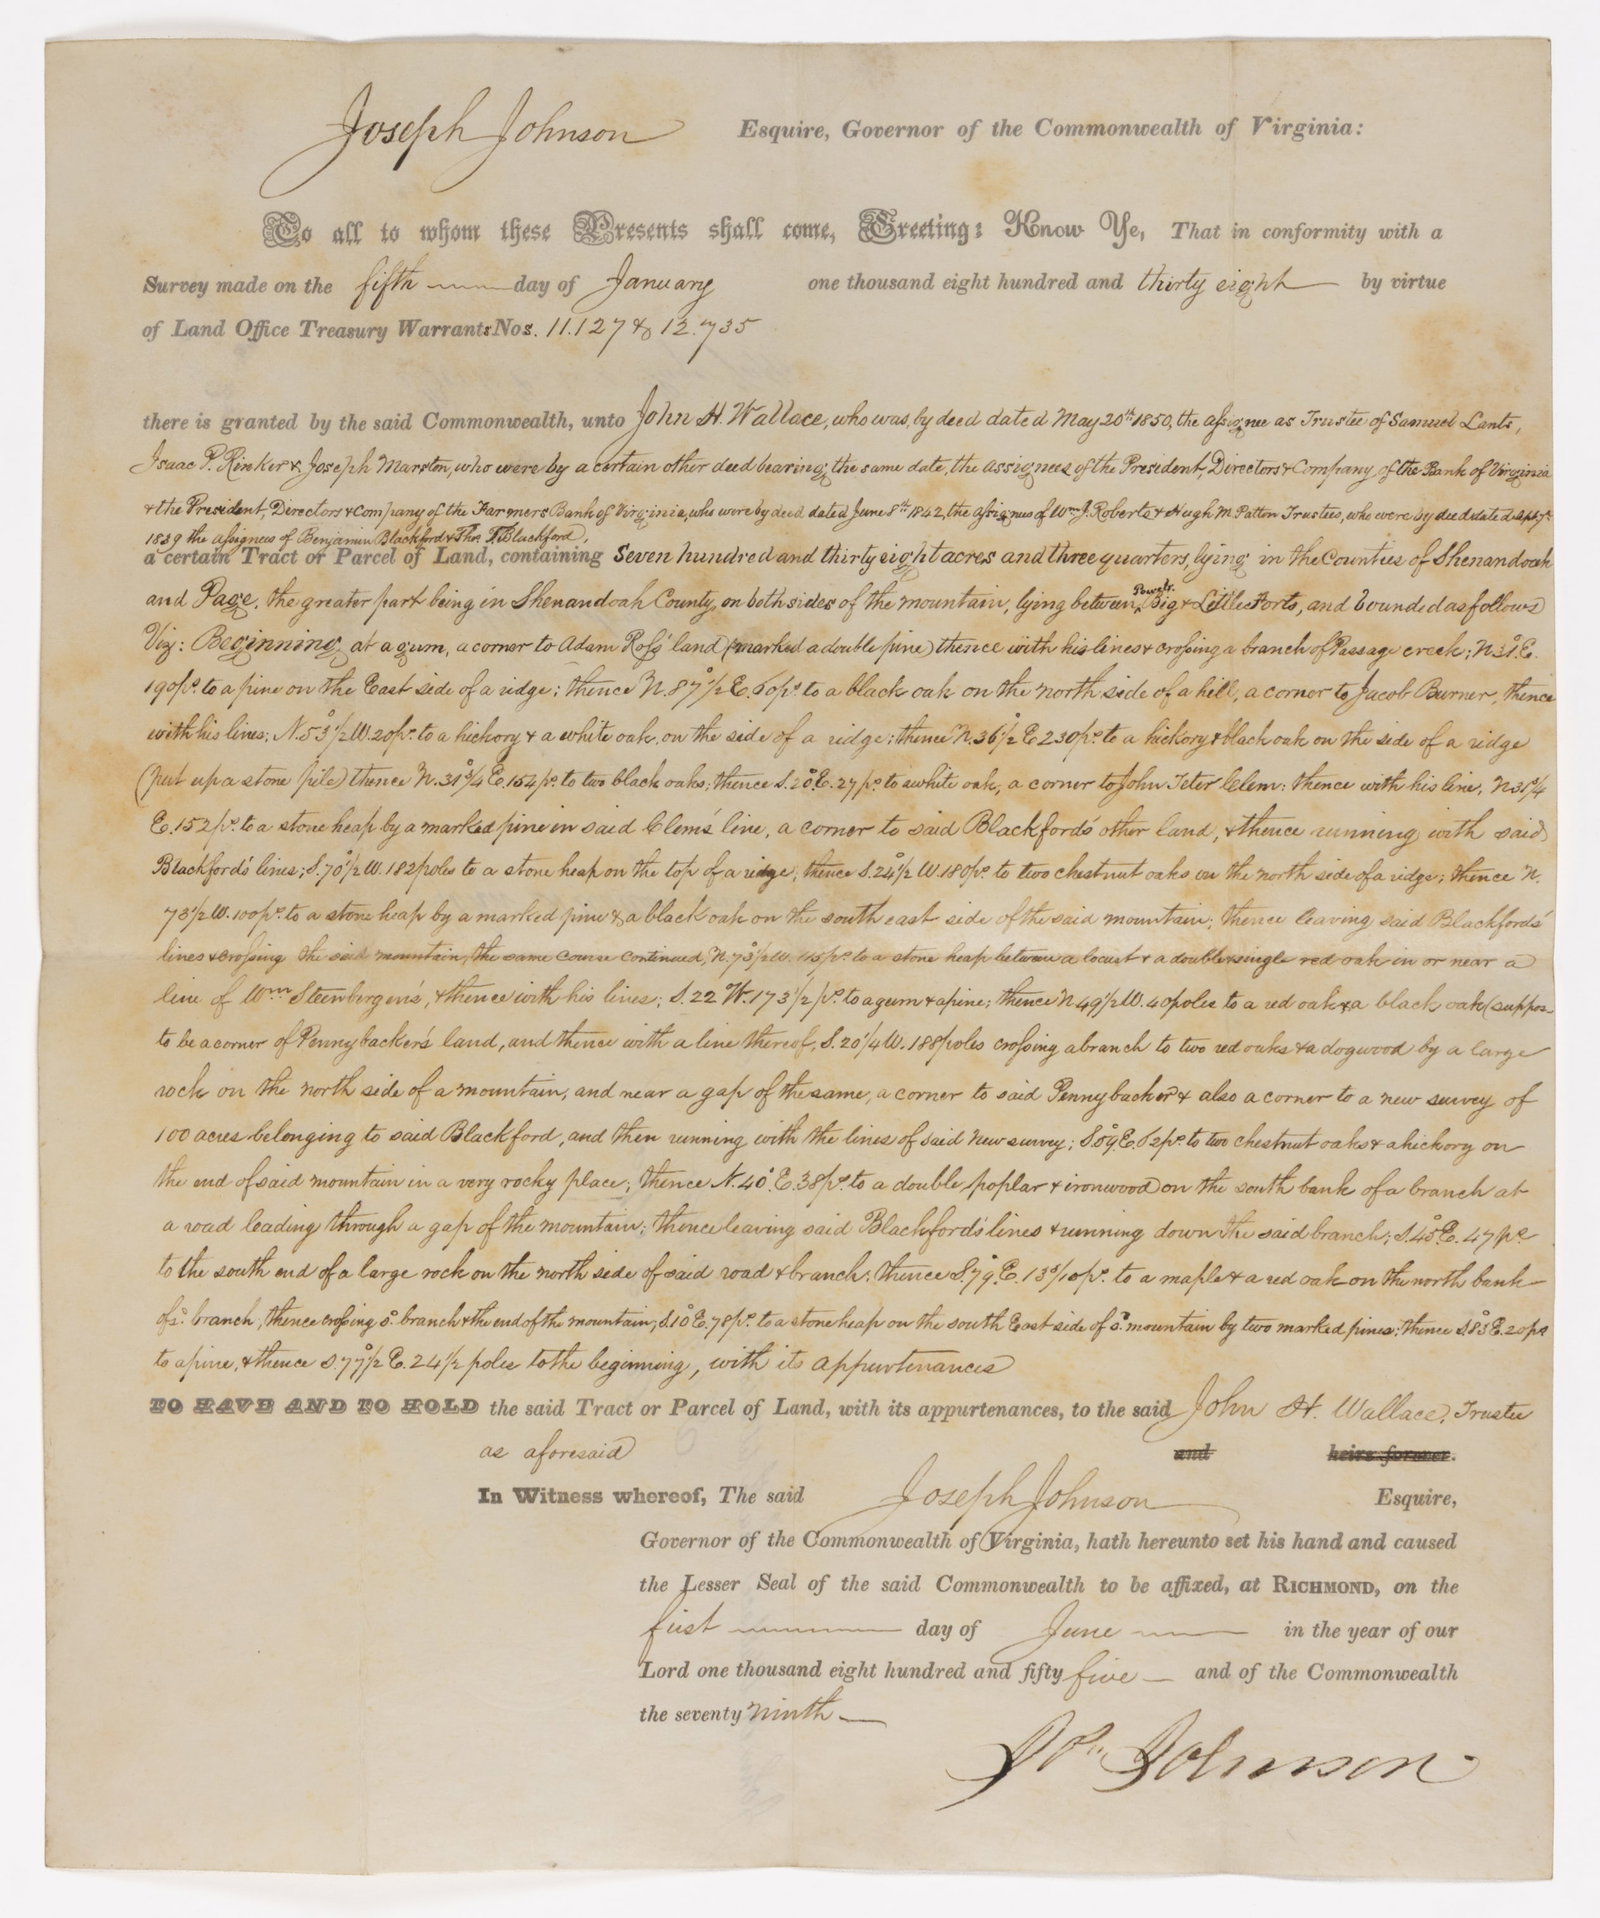 Joseph Johnson Esquire, Governor of the Commonwealth of Virginia:
To all to whom these Presents shall come, Greeting: Know Ye, That in conformity with a
Survey made on the fifth day of January one thousand eight hundred and thirty eight by virtue
of Land Office Treasury Warrants Nos. 11.127 & 12.735
there is granted by the said Commonwealth, unto John H. Wallace, who was, by deed dated May 20th 1850, the assignee as Trustee of Samuel Lants,
Isaac P. Rinker & Joseph Marston, who were by a certain other deed bearing the same date, the assignees of the President, Directors & Company of the Bank of Virginia
& the President, Directors & Company of the Farmers Bank of Virginia, who were by deed dated June 8th 1842, the assignees of Wm J. Roberts & Hugh M Patton Trustees, who were by deed dated
1839 the assignees of Benjamin Blackford & Thos. T. Blackford,
a certain Tract or Parcel of Land, containing Seven hundred and thirty eight acres and three quarters, lying in the Counties of Shenandoah
and Page, the greater part being in Shenandoah County, on both sides of the mountain, lying between Powels. Big & Little Forts, and bounded as follows
Viz: Beginning at a gum, a corner to Adam Ross' land (marked a double pine) thence with his lines & crossing a branch of Passage creek; N 31° E.
190 po. to a pine on the East side of a ridge; thence N. 87°1/2 E. 60 po. to a black oak on the north side of a hill, a corner to Jacob Burner, thence
with his lines; N. 53°1/2 W. 20 po. to a hickory & a white oak, on the side of a ridge; thence N. 36°1/2 E 230 po. to a hickory & black oak on the side of a ridge
(put up a stone pile) thence N. 31°3/4 E. 154 po. to two black oaks; thence S. 20° E. 27 po. to a white oak, a corner to John Teter Clem: thence with his line, N 31°3/4
E. 152 po. to a stone heap by a marked pine in said Clem's line, a corner to said Blackford's other land, & thence running with said
Blackford's lines; S. 70°1/2 W. 182 poles to a stone heap on the top of a ridge; thence S. 24°1/2 W. 180 po. to two chestnut oaks on the north side of a ridge; thence N.
73 1/2 W. 100 po. to a stone heap by a marked pine & a black oak on the south east side of the said mountain; thence leaving said Blackford's
lines & crossing the said mountain, the same course continued, N. 73°1/2 W. 115 po. to a stone heap between a locust & a double & single red oak in or near a
line of Wm Steenbergen's, & thence with his lines; S. 22° W. 173 1/2 po. to a gum & a pine; thence N 49 1/2 W. 40 poles to a red oak & a black oak (suppos-
to be a corner of Pennybacker's land, and thence with a line thereof, S. 20°1/4 W. 188 poles crossing a branch to two red oaks & a dogwood by a large
rock on the north side of a mountain, and near a gap of the same, a corner to said Pennybacker & also a corner to a new survey of
100 acres belonging to said Blackford, and then running with the lines of said new survey; S. E. po. to two chestnut oaks & a hickory on
the end of said mountain in a very rocky place; thence N. 40° E. 38 po. to a double poplar & ironwood on the south bank of a branch at
a road leading through a gap of the mountain; thence leaving said Blackford's lines & running down the said branch; S. 45° E. 47 po
to the south end of a large rock on the north side of said road & branch; thence S. 79° E. 13 po. to a maple & a red oak on the north bank
of sd. branch, thence crossing sd. branch & the end of the mountain, S. 10° E. 78 po. to a stone heap on the south East side of sd. mountain by two marked pines; thence S. 83° E. 20 po
to a pine, & thence S 77°1/2 E. 24 1/2 poles to the beginning, with its appurtenances
TO HAVE AND TO HOLD the said Tract or Parcel of Land, with its appurtenances, to the said John H. Wallace, Trustee
as aforesaid and heirs forever.
In Witness whereof, The said Joseph Johnson Esquire,
Governor of the Commonwealth of Virginia, hath hereunto set his hand and caused
the Lesser Seal of the said Commonwealth to be affixed, at RICHMOND, on the
first day of June in the year of our
Lord one thousand eight hundred and fifty five and of the Commonwealth
the seventy ninth
Jos. Johnson